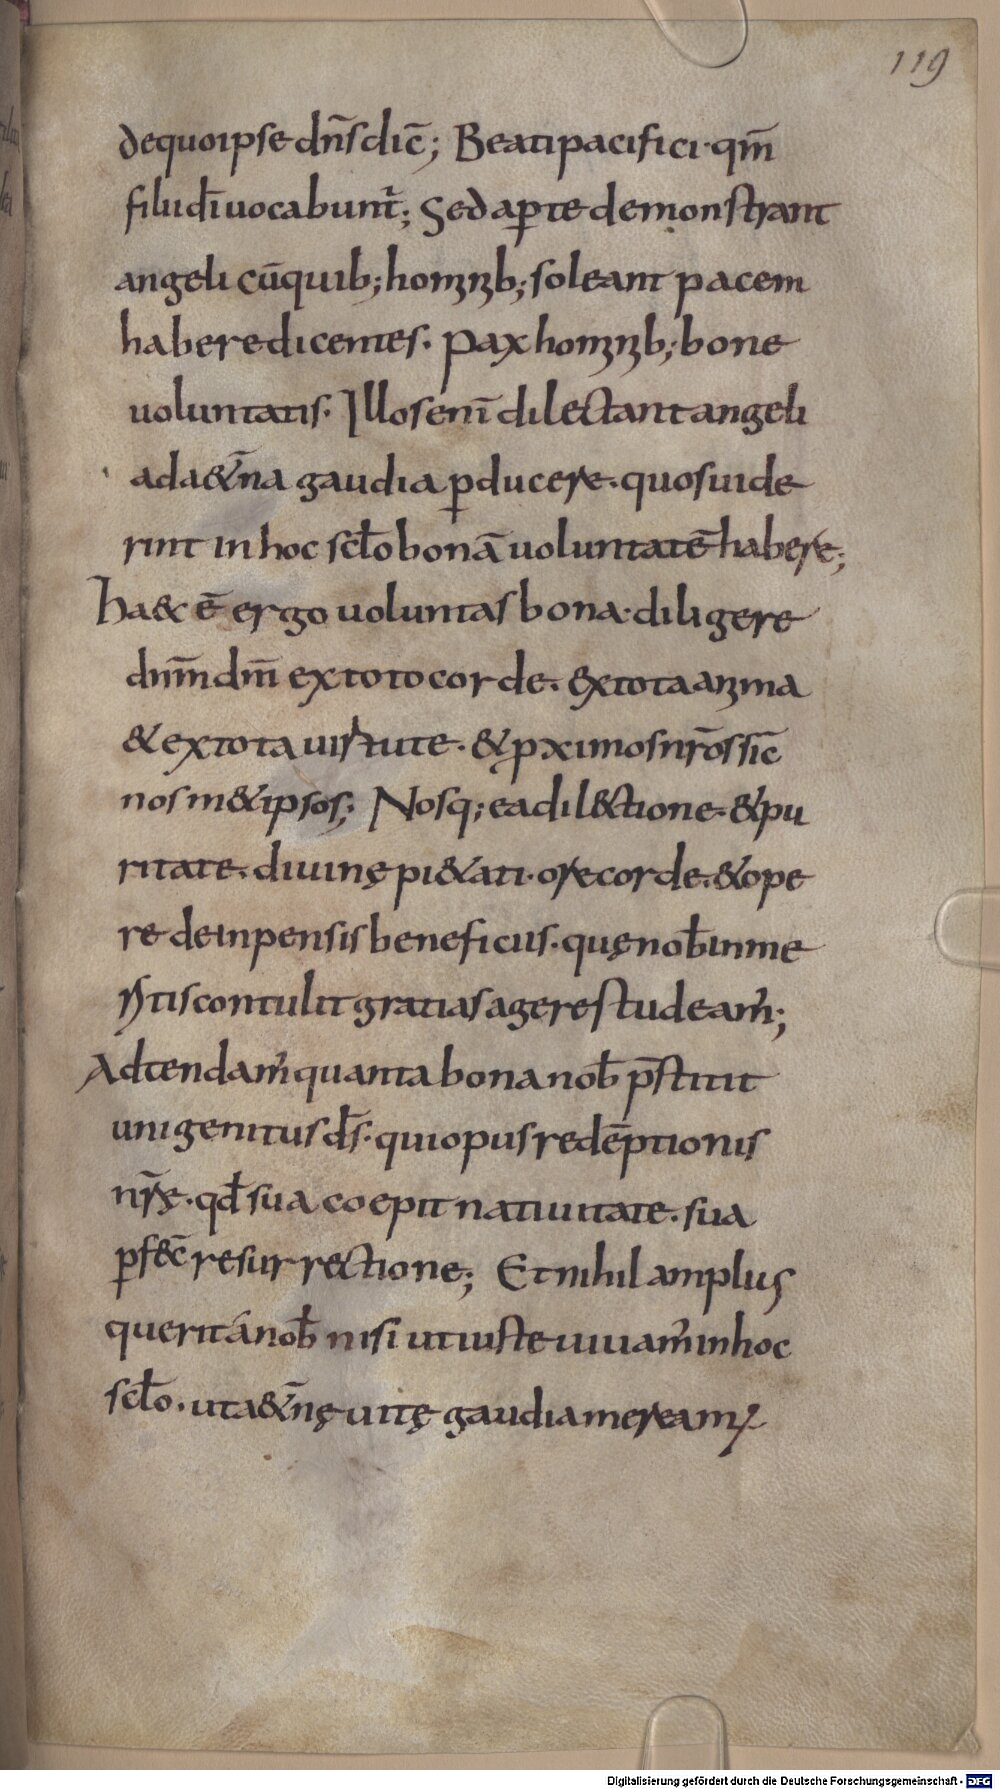 119
de quo ipse dn̄s dic̄; Beati pacifici · qm̄
filii dī uocabunt̄; Sed aꝑte demonstrant
angeli cū quib; hominib; soleant pacem
habere dicentes. Pax hominib; bone
uoluntatis. Illos enī dilectant angeli
ad a&̄na gaudia ꝑducere. quos uide
rint in hoc scło bonā uoluntatē habere;
Ha&c ē ergo uoluntas bona · diligere
dnm̄ dm̄ ex toto corde. & ex tota anima
& ex tota uirtute. & ꝓximos nr̄os sic̄
nosm&ipsos; Nosq; ea dil&ctione. & pu
ritate. diuinę pi&ati. ore corde. & ope
re de inpensis beneficiis. quę nob̄ inme
ritis contulit gratias agere studeam᾽;
Adtendam᾽ quanta bona nob̄ p̄stitit
unigenitus dī̄s. qui opus redēptionis
nr̄ę. qđ sua coepit natiuitate. sua
ꝑf&c̄ resurrectione; Et nihil amplius
querit á nob̄ nisi ut iuste uiuam᾽ in hoc
scło. ut a&̄nę uitę gaudia mereamꝛ
Digitalisierung gefördert durch die Deutsche Forschungsgemeinschaft - DFG